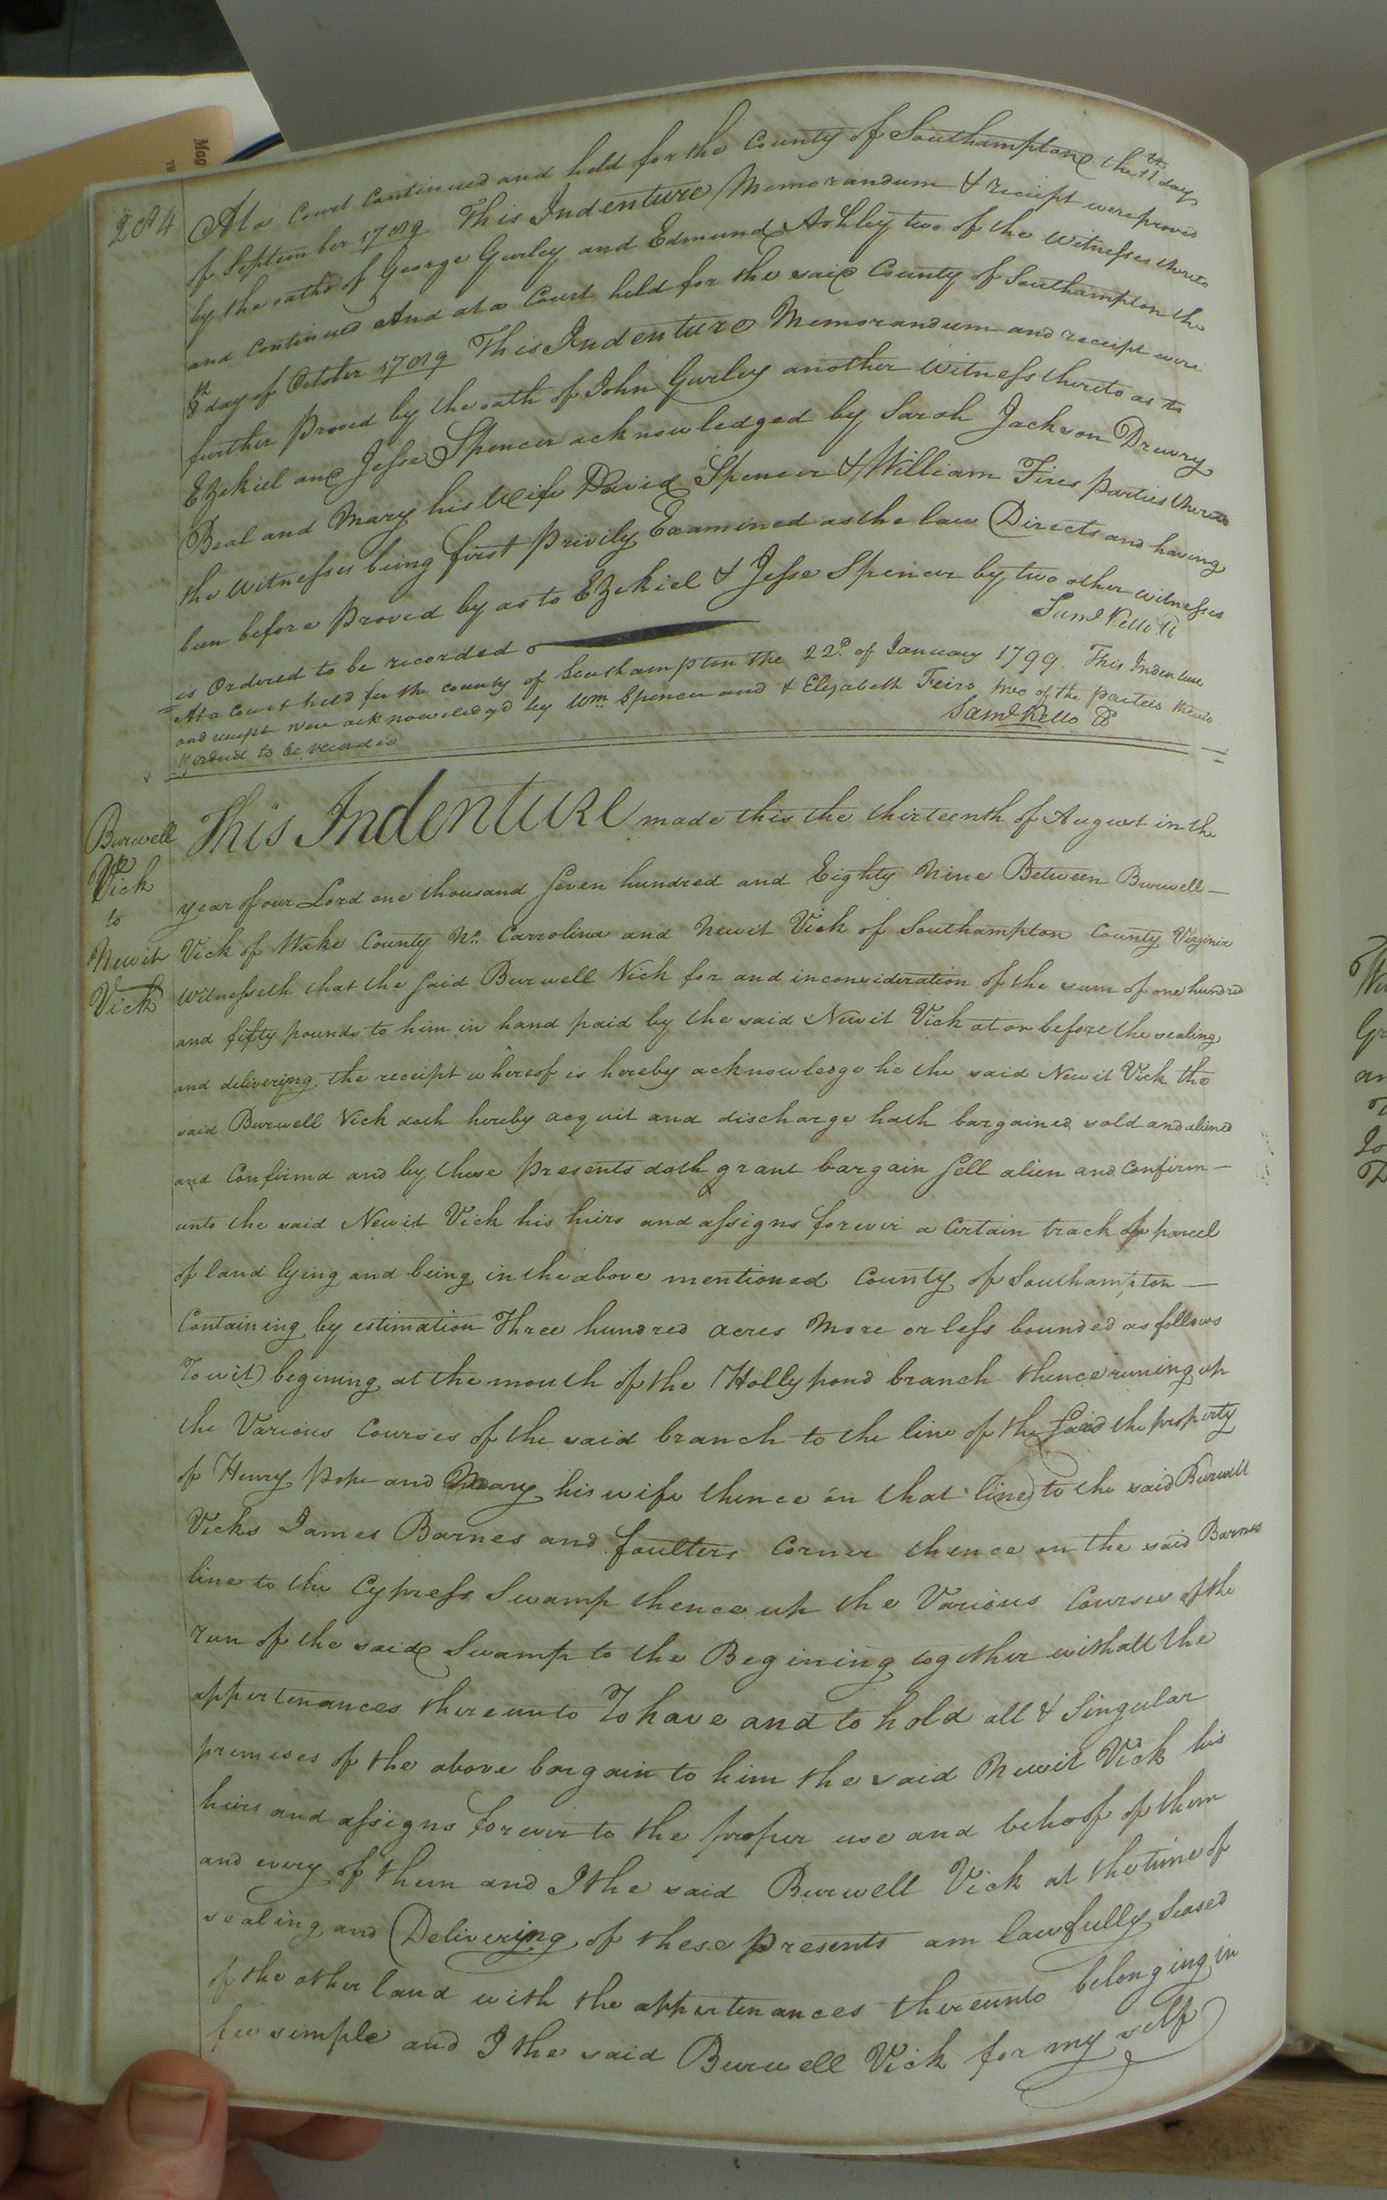 284
At a Court Continued and held for the County of Southampton the 11th day
of September 1789 This Indenture Memorandum & reciept were proved
by the oaths of George Gurley and Edmund Ashley two of the witnesses thereto
and Continued And at a Court held for the said County of Southampton the
8th day of October 1789 This Indenture Memorandum and receipt were
further Proved by the oath of John Gurley another Witness thereto as to
Ezekiel and Jesse Spencer acknowledged by Sarah Jackson Drewry
Beal and Mary his Wife David Spencer & William Fires Parties thereto
the Witnesses being first Privily Examined as the law Directs and having
been before Proved by as to Ezekiel & Jesse Spencer by two other witnesses
is Ordered to be recorded
Saml Kello Cl
At a Court held for the county of Southampton the 22d. of January 1799 This Indenture
and receipt were acknowledged by Wm. Spencer and & Elizabeth Feirs two of the parties thereto
& ordered to be recorded
Saml Kello
Burwell
Vick
to
Newit
Vick
This Indenture made this the thirteenth of August in the
year of our Lord one thousand Seven hundred and Eighty Nine Between Burwell
Vick of Wake County No. Carrolina and Newit Vick of Southampton County Virginia
Witnesseth that the Said Burwell Vick for and inconsideration of the sum of one hundred
and fifty pounds to him in hand paid by the said Newit Vick at or before the sealing
and delivering the receipt whereof is hereby acknowledge he the said Newit Vick the
said Burwell Vick doth hereby acquit and discharge hath bargained sold and aliened
and Confirmd and by these Presents doth grant bargain Sell alien and Confirm
unto the said Newit Vick his heirs and assigns forever a Certain track of parcel
of land lying and being in the above mentioned County of Southampton
Containing by estimation Three hundred acres More or less bounded as follows
To wit) begining at the mouth of the Holly pond branch thence runing up
the Various Courses of the said branch to the line of the Said the property
of Henry Pope and Mary his wife thence on that line) to the said Burwell
Vicks James Barnes and faulters Corner thence on the said Barnes
line to the Cypress Swamp thence up the Various Courses of the
run of the said Swamp to the Begining together with all the
appertenances thereunto To have and to hold all & Singular
premises of the above bargain to him the said Newit Vick his
heirs and assigns forever to the proper use and behoof of them
and every of them and I the said Burwell Vick at the time of
sealing and Delivering of these Presents am lawfully Seased
of the other land with the appertenances thereunto belonging in
fee simple and I the said Burwell Vick for my self